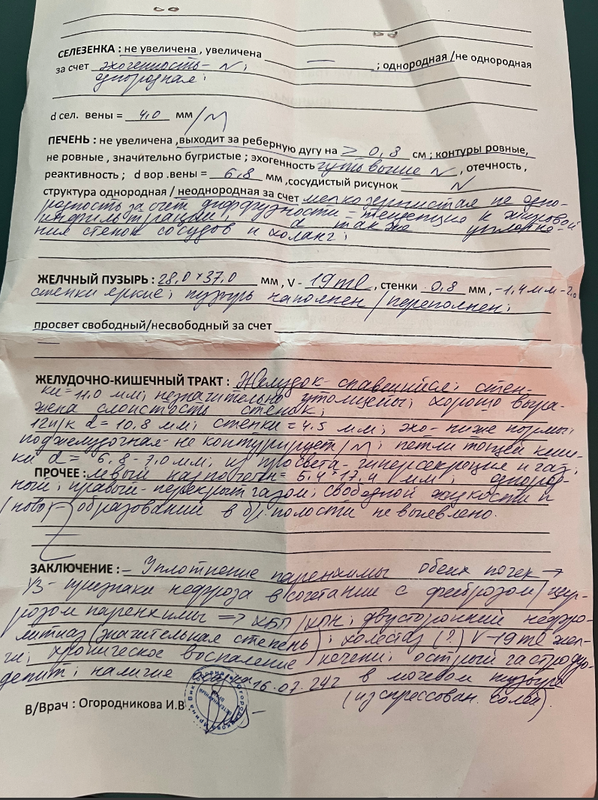 СЕЛЕЗЕНКА : не увеличена , увеличена
за счет эхогенность - N ; — ; однородная /не однородная
однородная ;
d сел. вены = 4,0 мм /N
ПЕЧЕНЬ : не увеличена ,выходит за реберную дугу на ≥ 0,8 см ; контуры ровные,
не ровные , значительно бугристые ; эхогенность чуть выше N , отечность ,
реактивность ; d вор .вены = 6.8 мм ,сосудистый рисунок N
структура однородная / неоднородная за счет мелкозернистая не одно-
родность за счет диффузности = тенденцию к жировой
инфильтрации ; а также уплотне-
ния стенок сосудов и холанг ;
ЖЕЛЧНЫЙ ПУЗЫРЬ : 28,0 × 37,0 мм , V - 19 ml , стенки 0.8 мм , - 1,4 мм -
стенки яркие ; пузырь наполнен / переполнен ;
просвет свободный/несвободный за счет
ЖЕЛУДОЧНО-КИШЕЧНЫЙ ТРАКТ : Желудок - спавшийся ; стен-
ки = 11.0 мм ; незначительно утолщены ; хорошо выра-
жена слоистость стенок ;
12п/к d = 10.8 мм ; стенки = 4.5 мм ; эхо - ниже нормы ;
поджелудочная - не контурирует /N ; петли тощей киш-
ки d = 6,8 - 7,0 мм ; из просвета - гиперсекреция и газ ;
ПРОЧЕЕ : левый надпочечн = 5,4 × 17,4 / мм ; однород-
ный ; правый - перекрыт газом ; свободной жидкости и
/ново/ образований в бр. полости не выявлено.
ЗАКЛЮЧЕНИЕ : — Уплотнение паренхимы обеих почек →
УЗ - признаки нефроза в сочетании с фиброзом / цир-
розом паренхимы => ХБП /ХПН ; двусторонний нефро-
литиаз (значительная степень) ; холестаз (?) V - 19 ml жел-
чи ; хроническое воспаление печени ; острый гастродуо-
денит ; наличие 16.07.24г в мочевом пузыре
В/Врач : Огородникова И.В (из спрессован. солей).